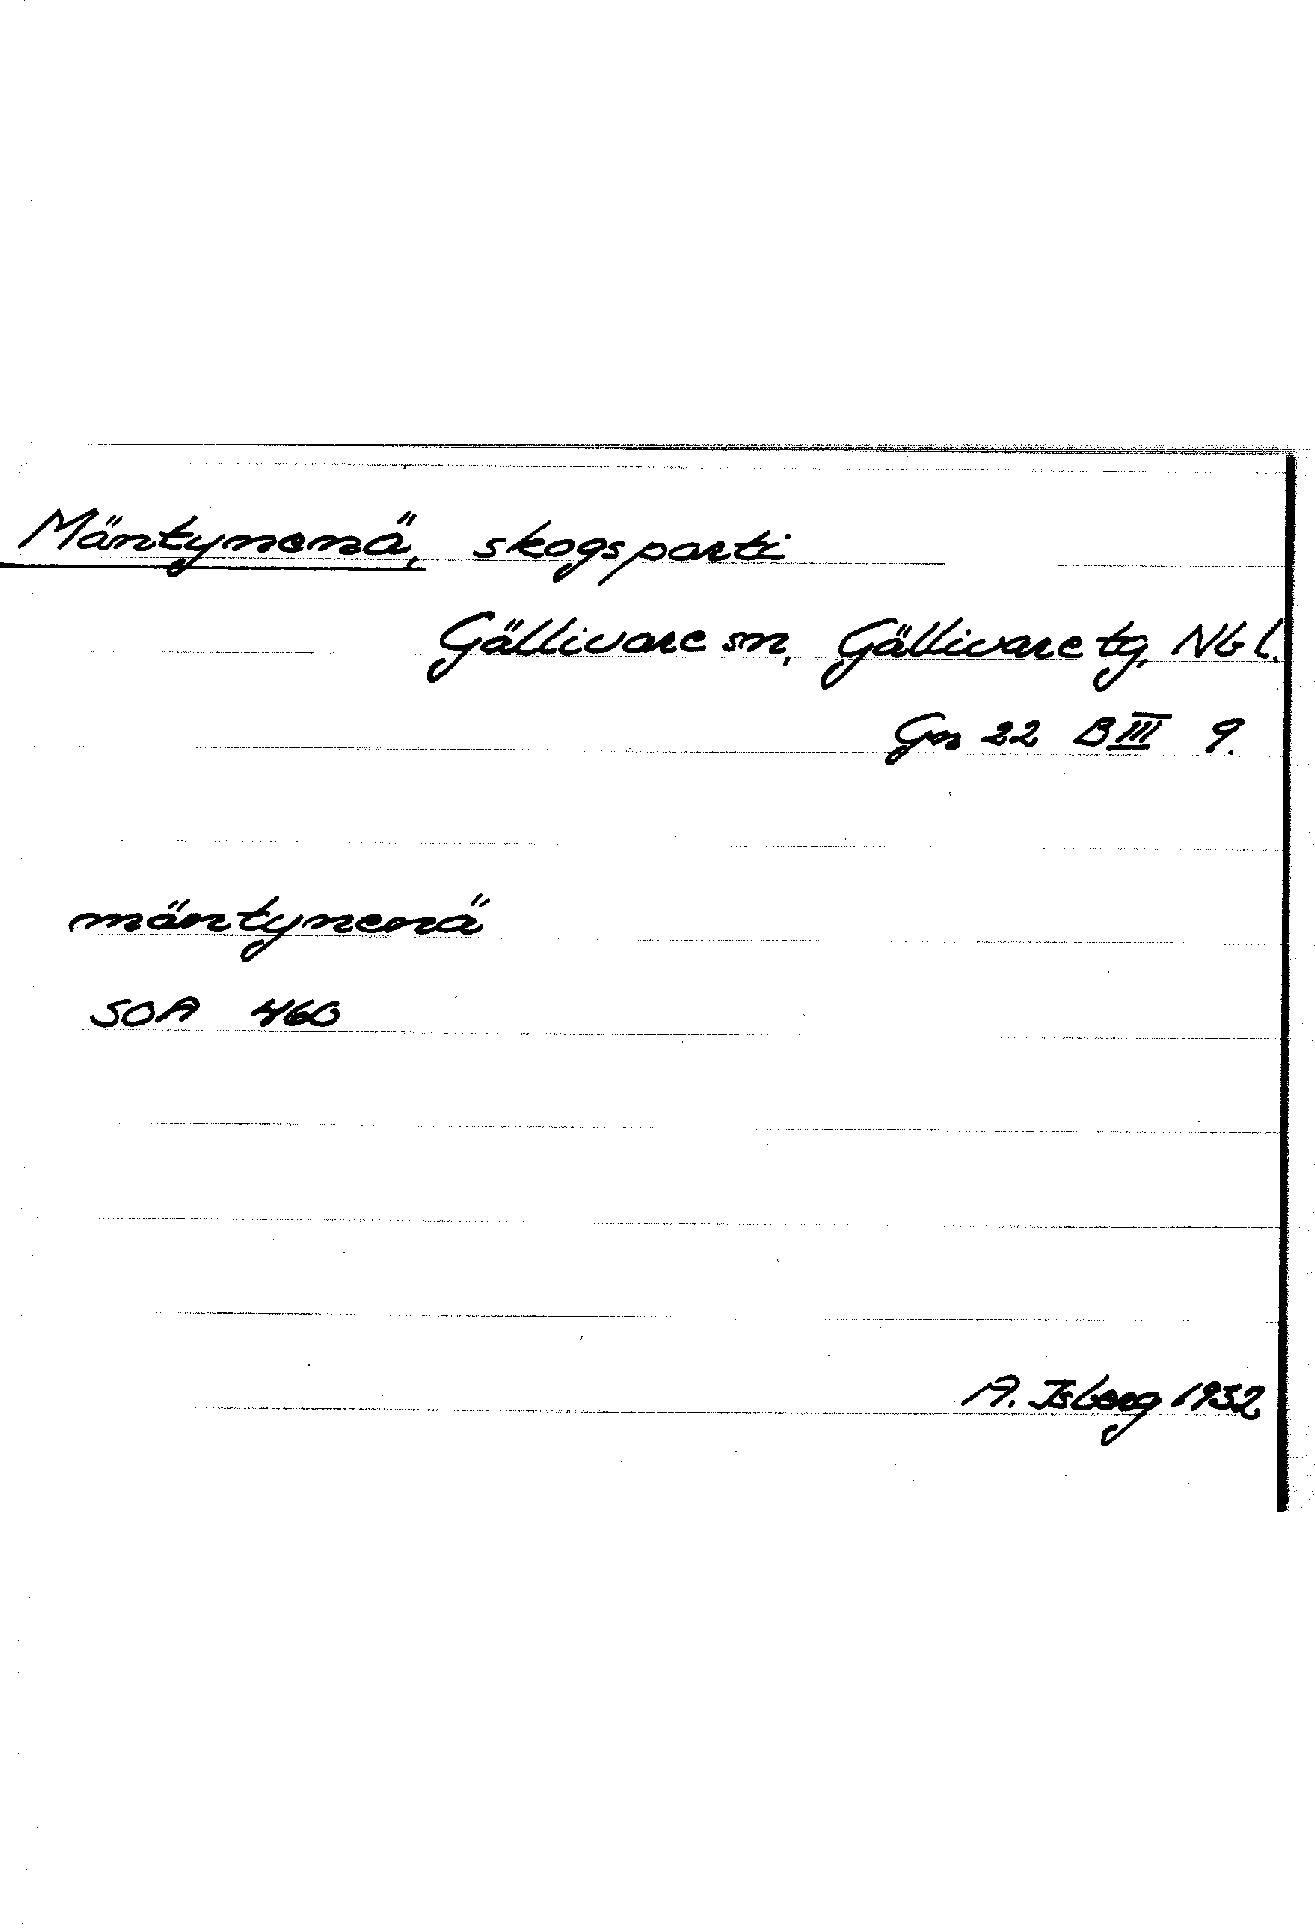 Mäntynenä, skogsparti
Gällivare sn, Gällivare tg, Nb l.
Gm 22 B III 9.
mäntynenä
SOA 460
A. Isberg 1932